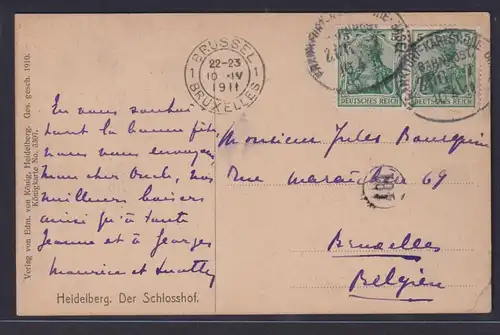 BRUSSEL
1 22-23 1
10 -IV
1911
BRUXELLES
FRANKFURT-KARLSRUHE-BASEL
BAHNPOST
DEUTSCHES REICH
DEUTSCHES REICH
En vous souhaitant la bonne fête
nous vous envoyons
mon cher Oncle, nos
meilleurs baisers
ainsi qu'à tante
Jeanne et à Georges
Maurice et
Monsieur Jules
rue 69
Bruxelles
Belgien
Heidelberg. Der Schlosshof.
Verlag von Edm. von König, Heidelberg. Ges. gesch. 1910.
Königkarte No. 3307.